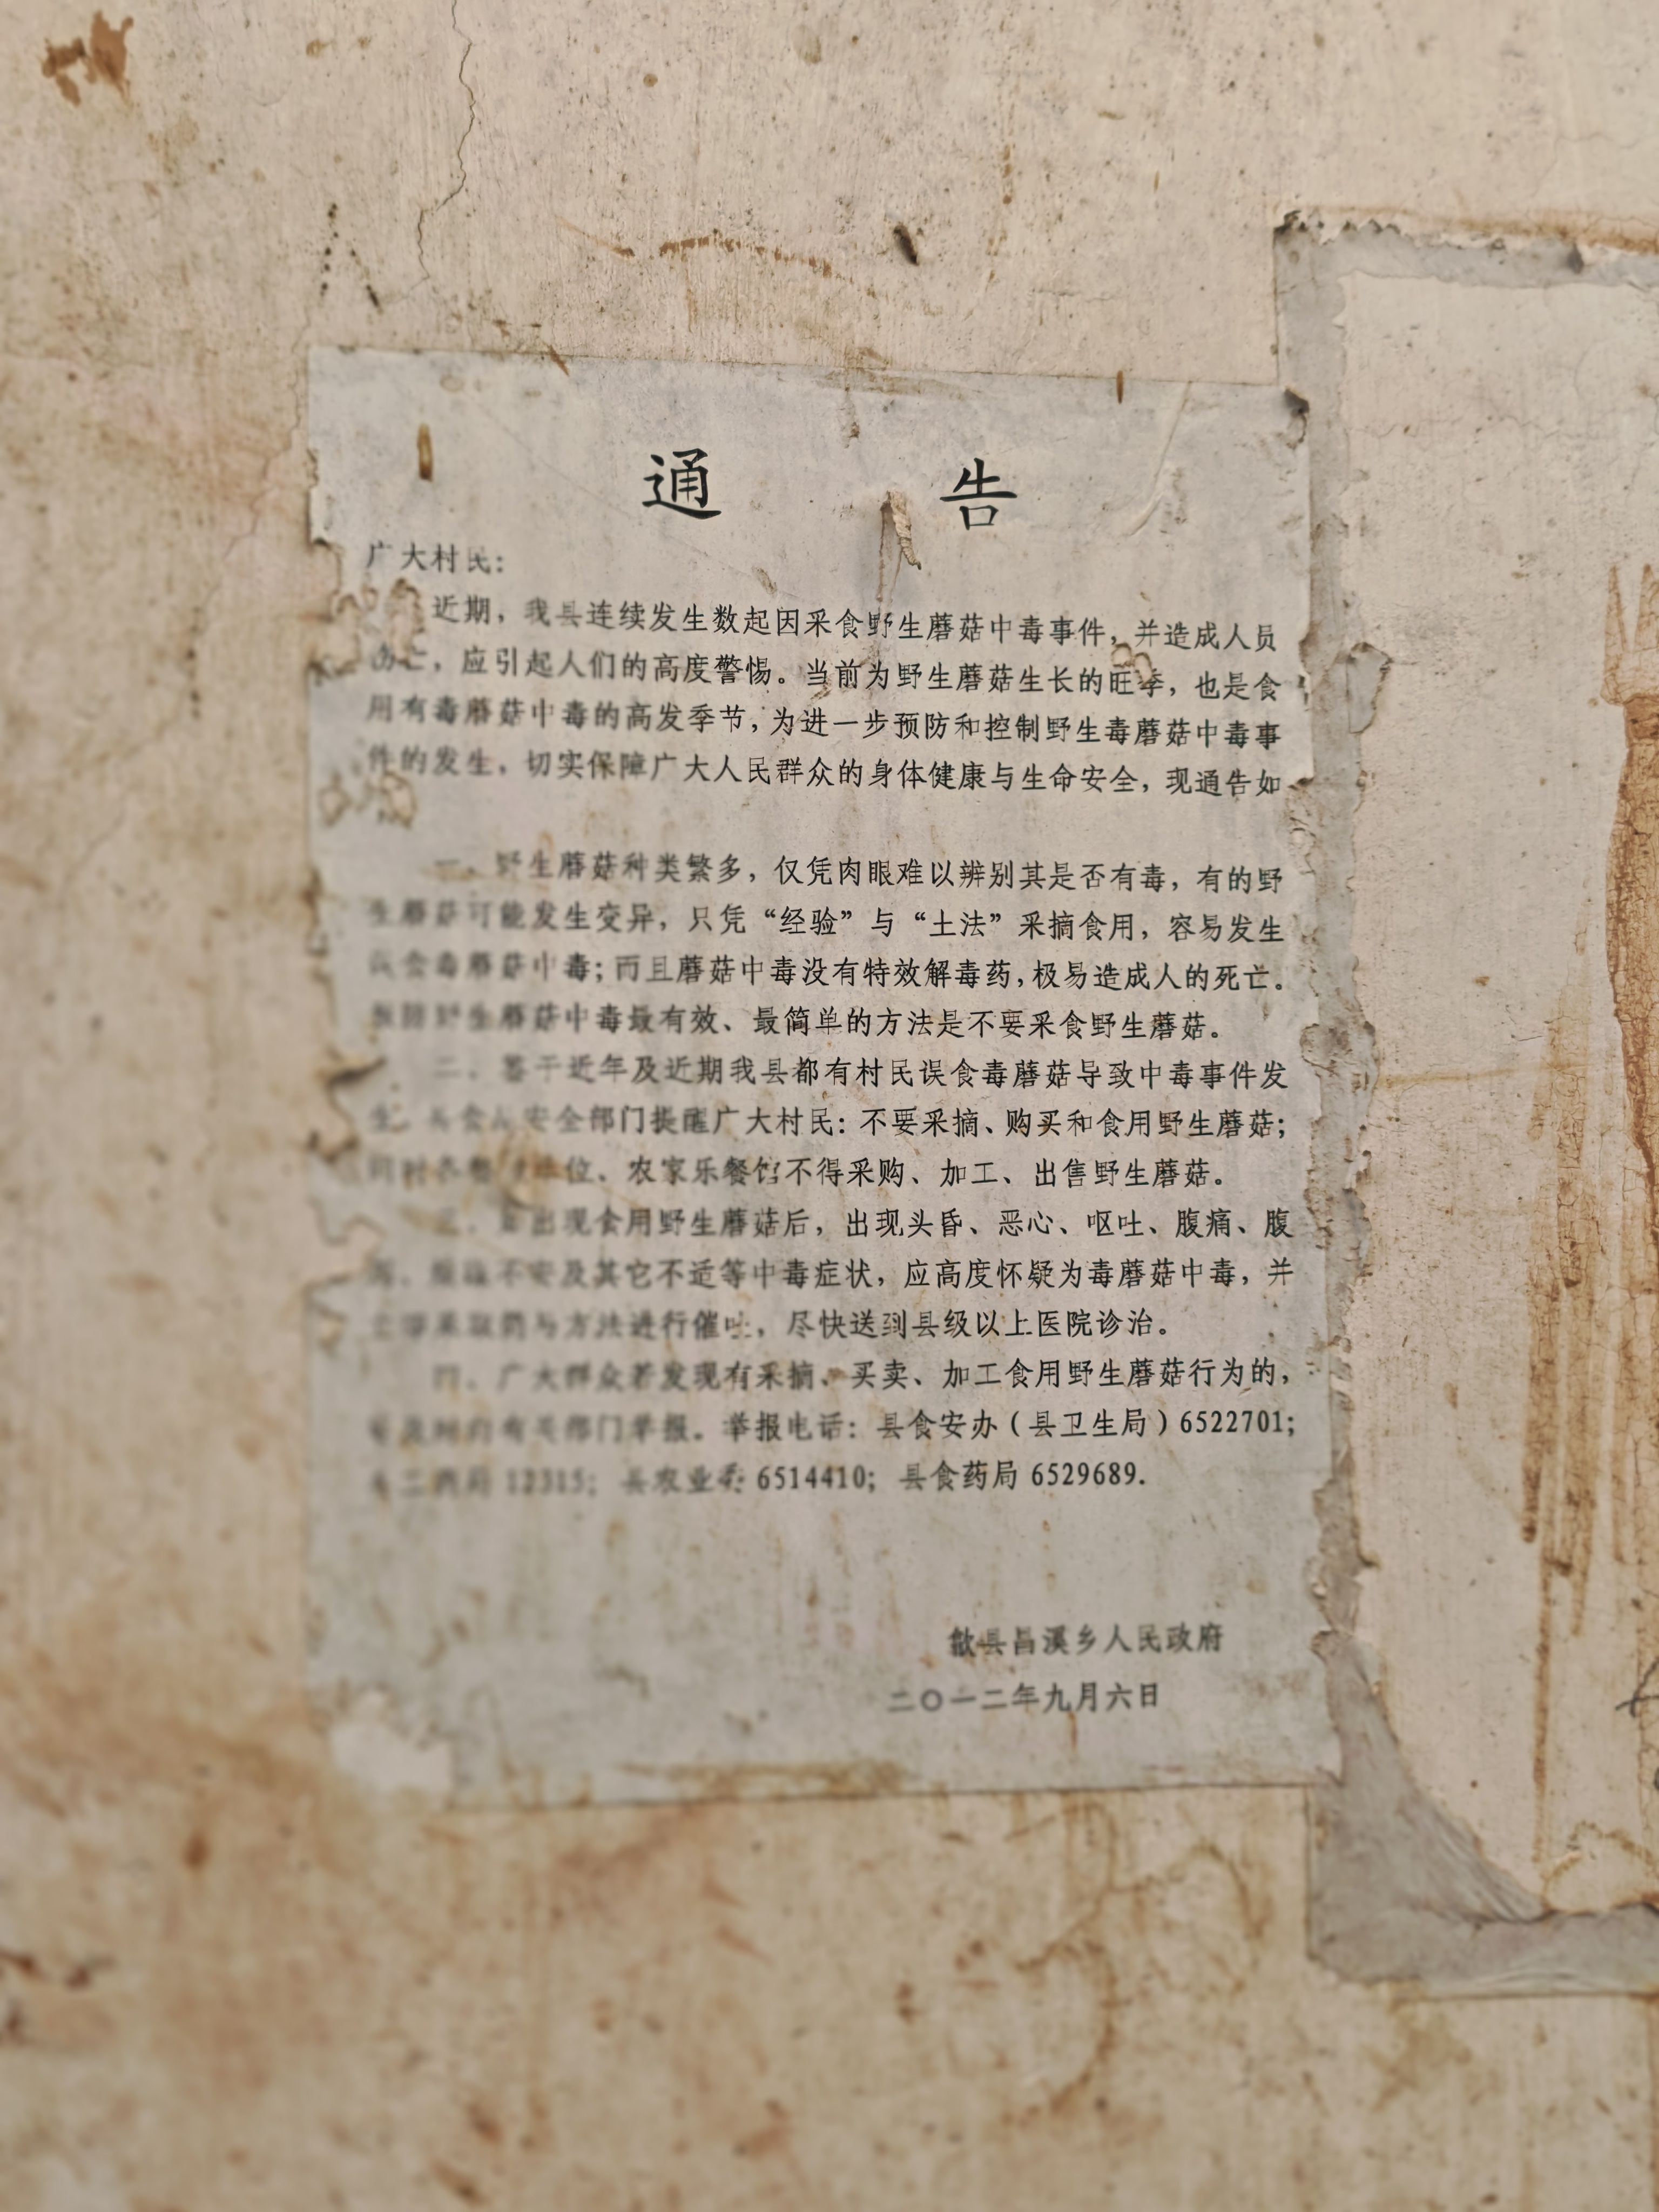 通 告
广大村民：
近期，我县连续发生数起因采食野生蘑菇中毒事件，并造成人员
伤亡，应引起人们的高度警惕。当前为野生蘑菇生长的旺季，也是食
用有毒蘑菇中毒的高发季节，为进一步预防和控制野生毒蘑菇中毒事
件的发生，切实保障广大人民群众的身体健康与生命安全，现通告如
一、野生蘑菇种类繁多，仅凭肉眼难以辨别其是否有毒，有的野
生蘑菇可能发生变异，只凭“经验”与“土法”采摘食用，容易发生
误食毒蘑菇中毒；而且蘑菇中毒没有特效解毒药，极易造成人的死亡。
预防野生蘑菇中毒最有效、最简单的方法是不要采食野生蘑菇。
二、鉴于近年及近期我县都有村民误食毒蘑菇导致中毒事件发
生，安全部门提醒广大村民：不要采摘、购买和食用野生蘑菇；
单位、农家乐餐馆不得采购、加工、出售野生蘑菇。
三、出现食用野生蘑菇后，出现头昏、恶心、呕吐、腹痛、腹
不安及其它不适等中毒症状，应高度怀疑为毒蘑菇中毒，并
方法进行催吐，尽快送到县级以上医院诊治。
四、广大群众若发现有采摘、买卖、加工食用野生蘑菇行为的，
有关部门举报。举报电话：县食安办（县卫生局）6522701；
12315；县农业委 6514410；县食药局 6529689.
歙县昌溪乡人民政府
二〇一二年九月六日